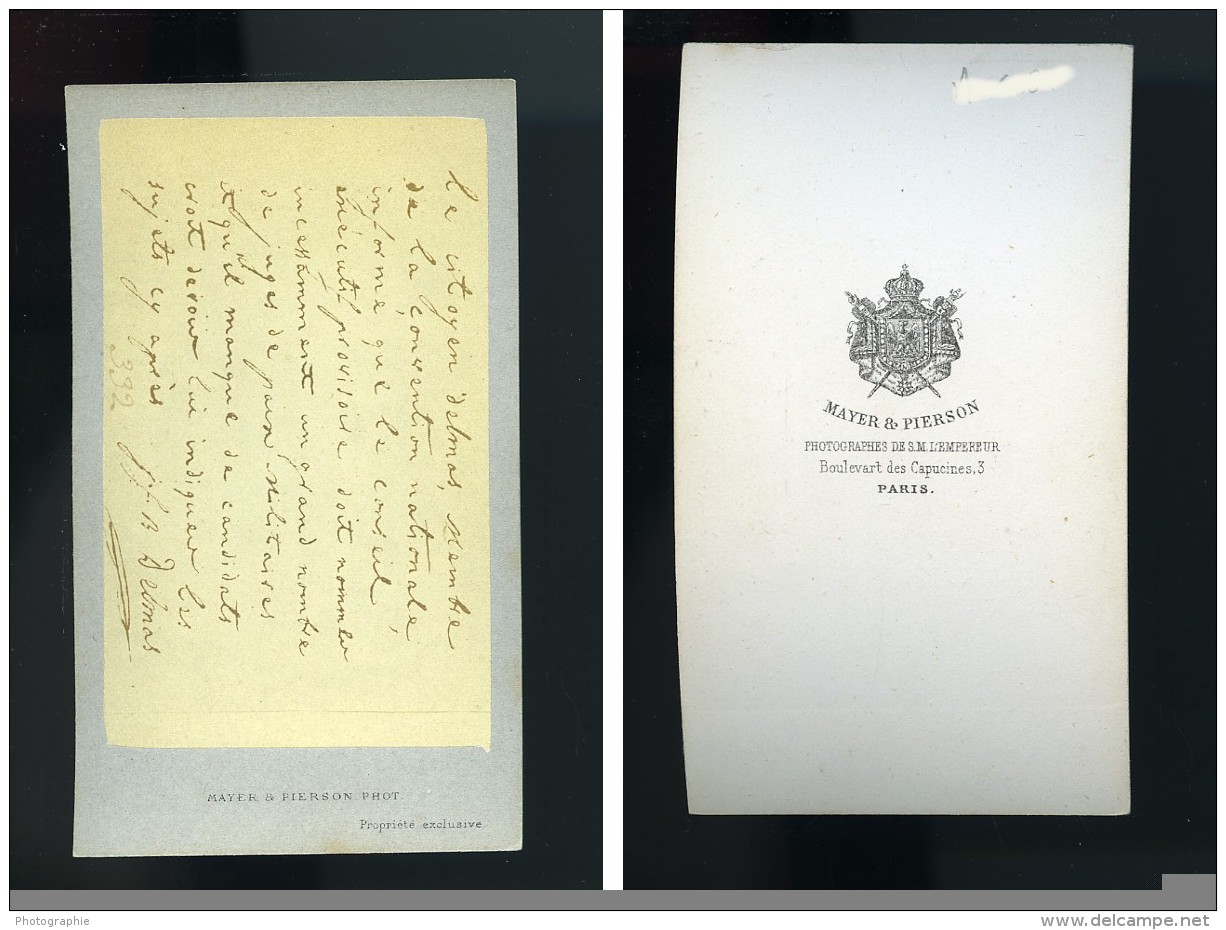 le citoyen delmas, Membre
de la convention nationale
informe que le conseil,
exécutif provisoire doit nommer
incessamment un grand nombre
de juges de paix Militaires
et qu'il manque de candidats
croit devoir lui indiquer les
sujets cy après
J. B Delmas
332
MAYER & PIERSON PHOT.
Propriété exclusive
MAYER & PIERSON
PHOTOGRAPHES DE S.M. L'EMPEREUR
Boulevart des Capucines, 3
PARIS.
Photographie
www.delcampe.net